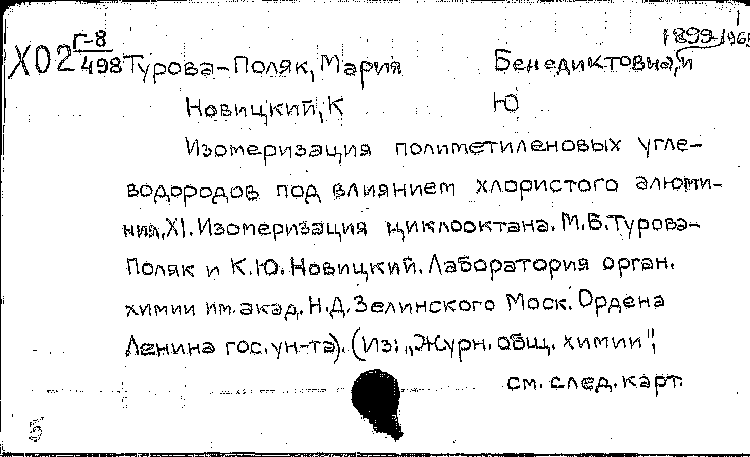 Г-8 1899-1965
ХО2 498 Турова-Поляк, Мария Бенедиктовна, и
Новицкий, К Ю
Изомеризация полиметиленовых угле-
водородов под влиянием хлористого алюми-
ния, XI. Изомеризация циклооктана. М.Б. Турова-
Поляк и К.Ю. Новицкий. Лаборатория орган.
химии им. акад. Н.Д. Зелинского Моск. Ордена
Ленина гос. ун-та). (Из: „Журн. общ. химии",
см. след. карт.
5